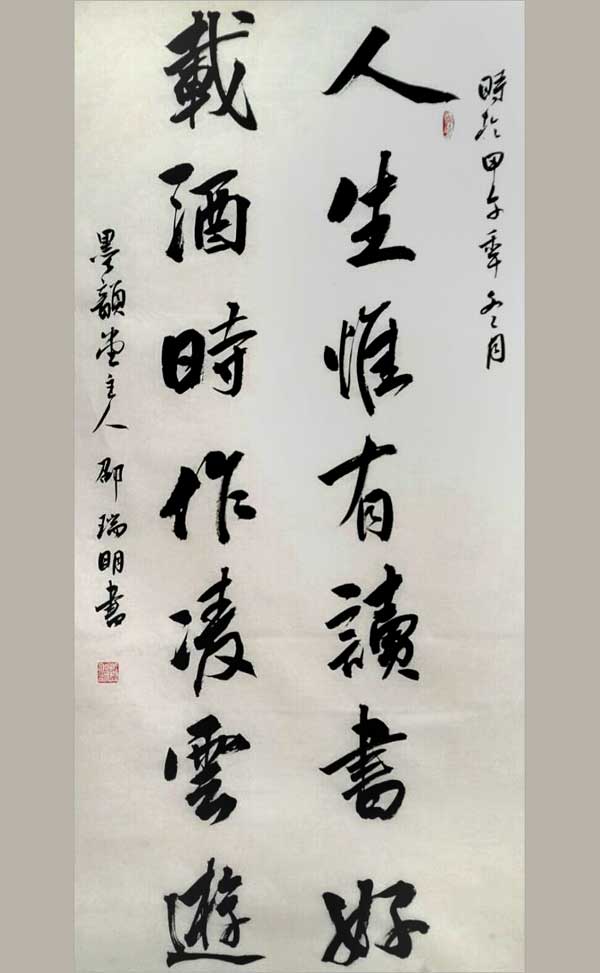 時於甲午年冬月
人生惟有讀書好
載酒時作凌雲遊
墨韻堂主人邵瑞明書